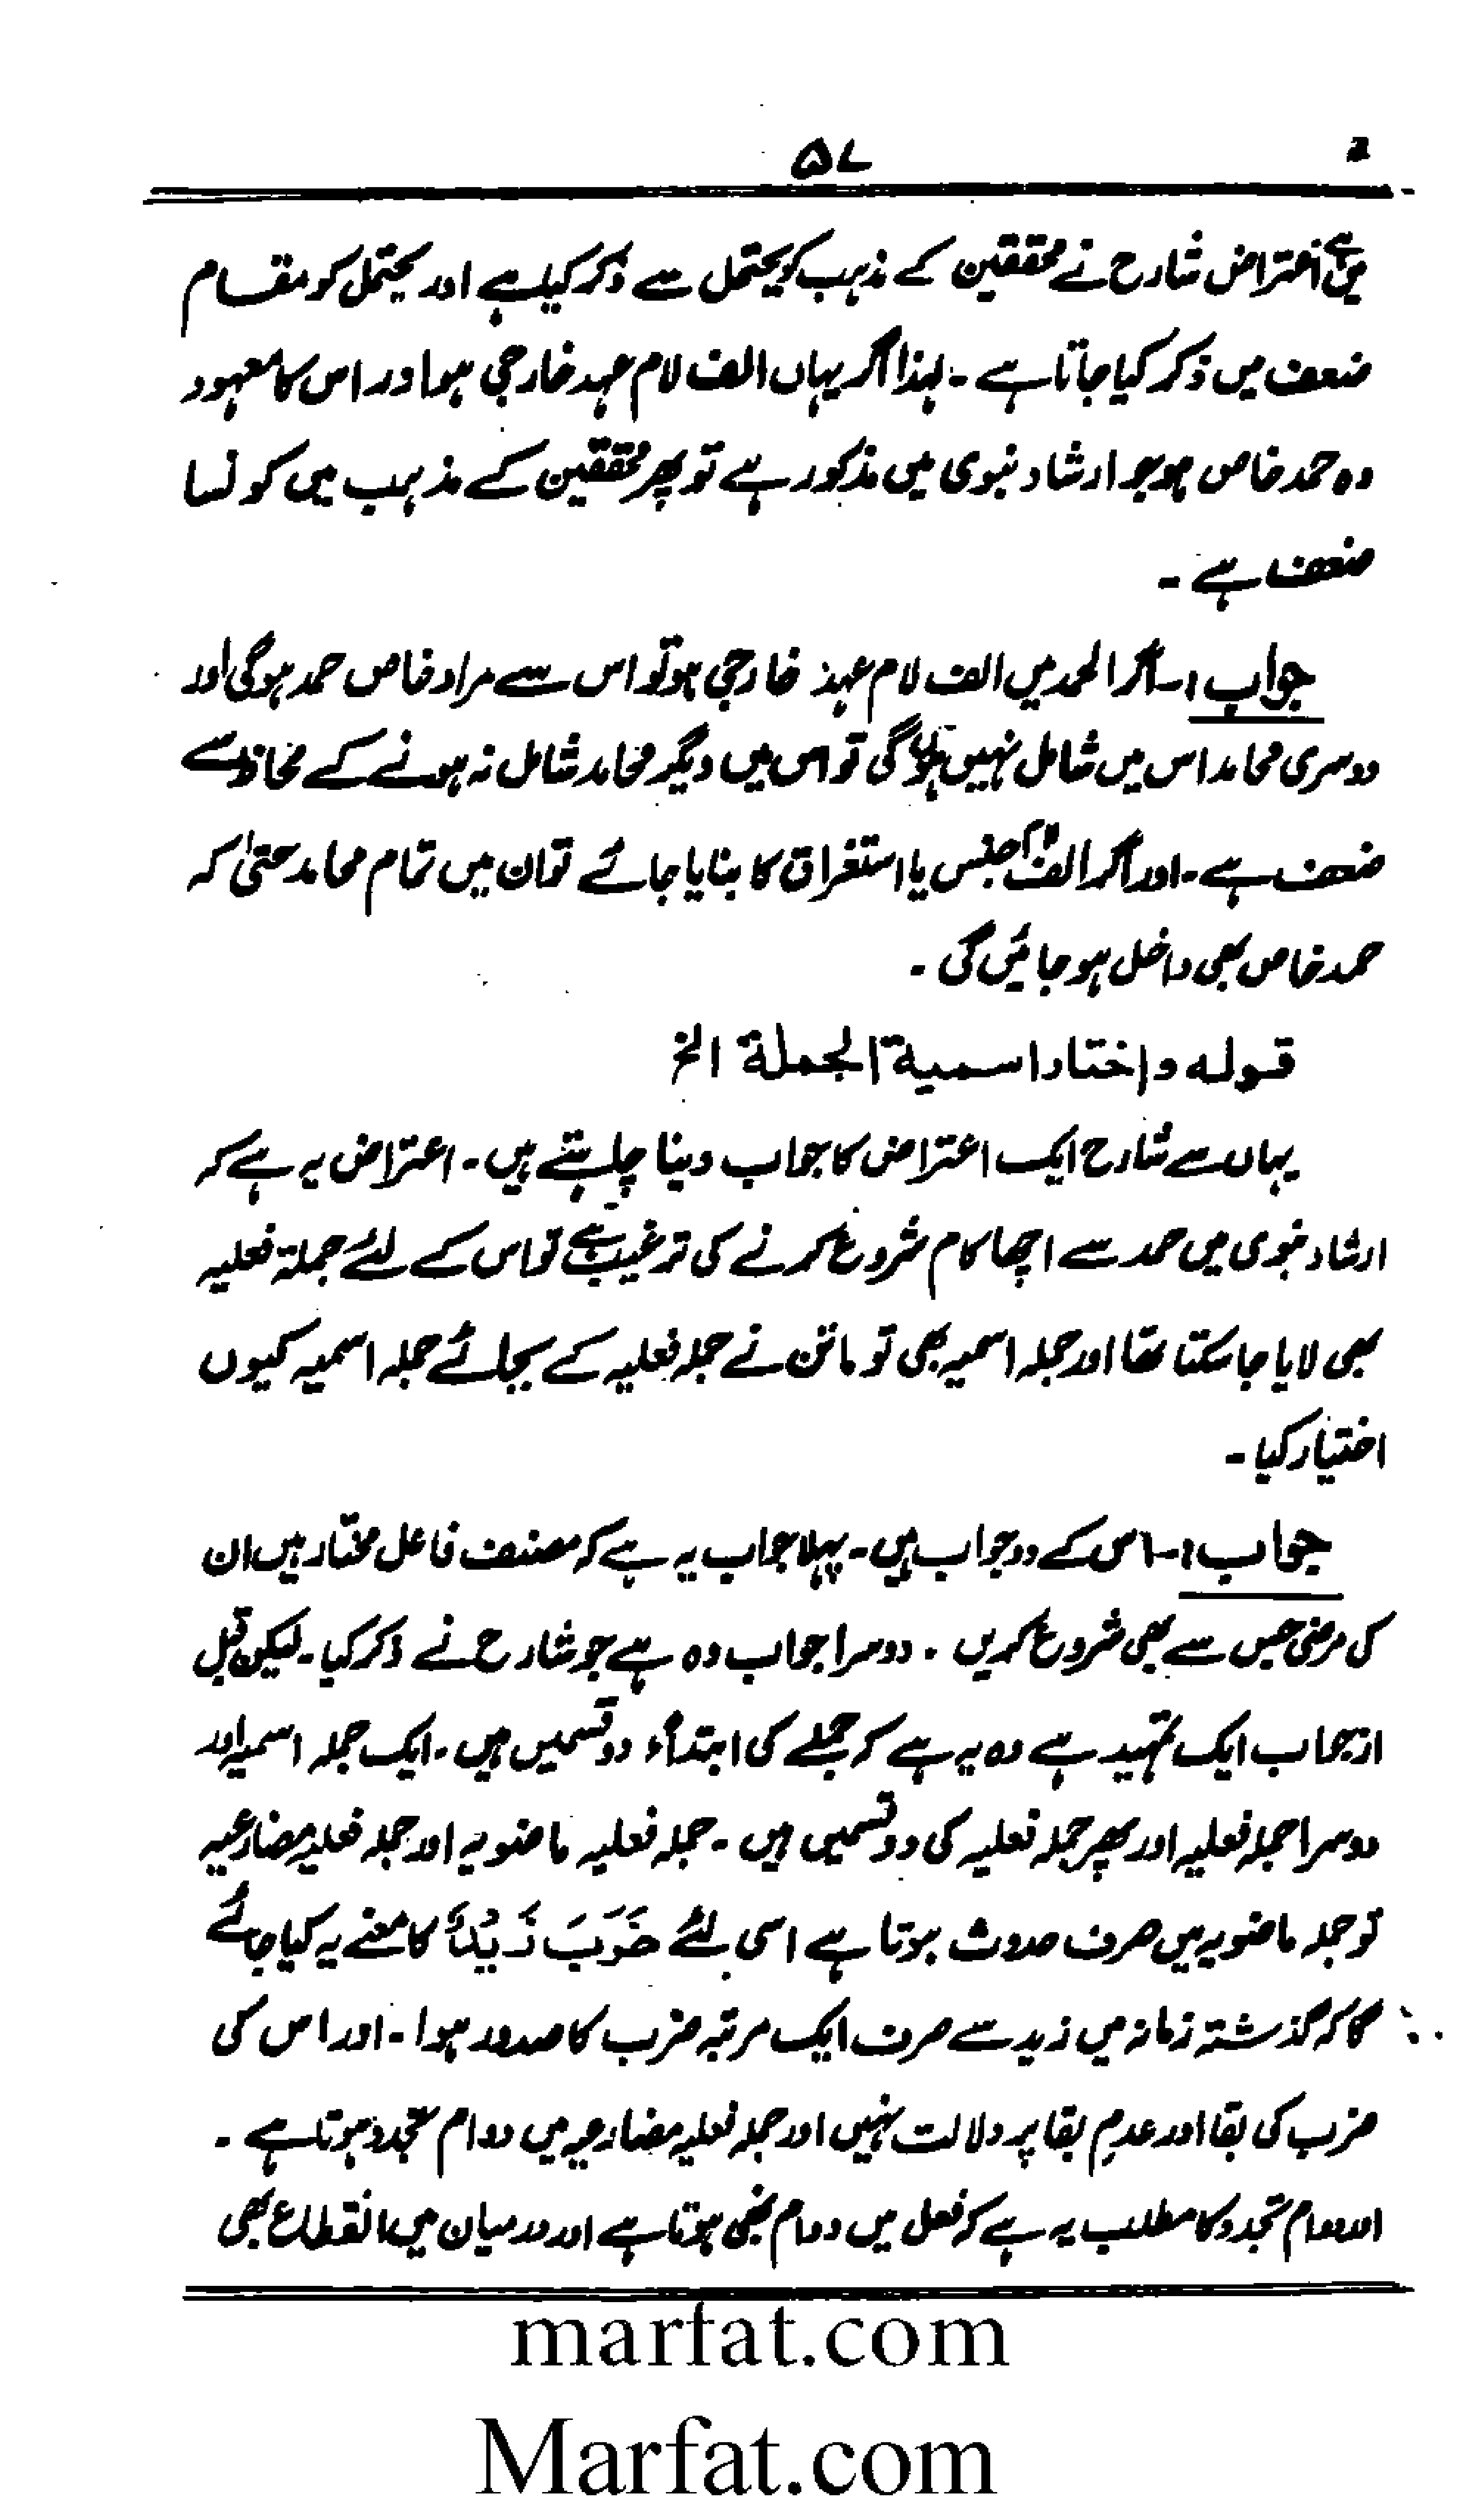 ۵۷
میں ہے اعتراض شارح نے محققین کے مذہب کو یحتمل سے ذکر کیا ہے اور یحتمل کو مقام
ضعف میں ذکر کیا جاتا ہے ۔ لہذا اگر یہاں الف لام عہد خارجی ہو اور اس کا معہود
وہ حمد خاص ہو جو ارشاد نبوی میں مذکور ہے تو پھر محققین کے مذہب میں کونسا
ضعف ہے ۔
جواب :۔ اگر الحمد میں الف لام عہد خارجی ہو تو اس سے مراد خاص حمد ہوگی اور
دوسری محامد اس میں شامل نہیں ہوں گی تو اس میں دیگر محامد شامل نہ ہونے کے لحاظ سے
ضعف ہے ۔ اور اگر الف لام جنس یا استغراق کا بنایا جائے تو ان میں تمام محامد حتیٰ کہ
حمد خاص بھی داخل ہو جائیں گی ۔
قولہ واختار اسمیة الجملة الخ
یہاں سے شارح ایک اعتراض کا جواب دینا چاہتے ہیں ۔ اعتراض یہ ہے کہ
ارشاد نبوی میں حمد سے اچھا کام شروع کرنے کی ترغیب ہے تو اس کے لئے جملۃ فعلیہ
بھی لایا جا سکتا تھا اور جملہ اسمیہ بھی تو ماتن نے جملہ فعلیہ کے بجائے جملہ اسمیہ کیوں
اختیار کیا ۔
جواب :۔ اس کے دو جواب ہیں ۔ پہلا جواب یہ ہے کہ مصنف فاعل مختار ہیں ان
کی مرضی جس سے بھی شروع کریں ۔ دوسرا جواب وہ ہے جو شارح نے ذکر کیا ۔ لیکن قبل
از جواب ایک تمہید ہے وہ یہ ہے کہ جملے کی ابتداءً دو قسمیں ہیں ۔ ایک جملہ اسمیہ اور
دوسرا جملہ فعلیہ اور پھر جملہ فعلیہ کی دو قسمیں ہیں ۔ جملہ فعلیہ ماضویہ اور جملہ فعلیہ مضارعیہ
تو جملہ ماضویہ میں صرف حدوث ہوتا ہے اسی لئے ضَرَبَ زَیْدٌ کا معنے یہ کیا جائے
گا کہ گذشتہ زمانہ میں زید سے صرف ایک مرتبہ ضرب کا صدور ہوا ۔ اور اس کی
ضرب کی بقا اور عدم بقا پر دلالت نہیں اور جملہ فعلیہ مضارعیہ میں دوام تجدد ہوتا ہے ۔
اور دوام تجدد کا مطلب یہ ہے کہ فعل میں دوام بھی ہوتا ہے اور درمیان میں انقطاع بھی
marfat.com
Marfat.com